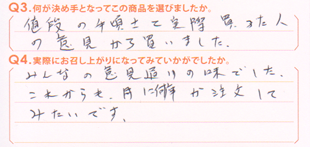 Q3.何が決め手となってこの商品を選びましたか。
値段の手頃さと実際買った人
の意見から買いました。
Q4.実際にお召し上がりになってみていかがでしたか。
みんなの意見通りの味でした。
これからも、月に何本か注文して
みたいです。